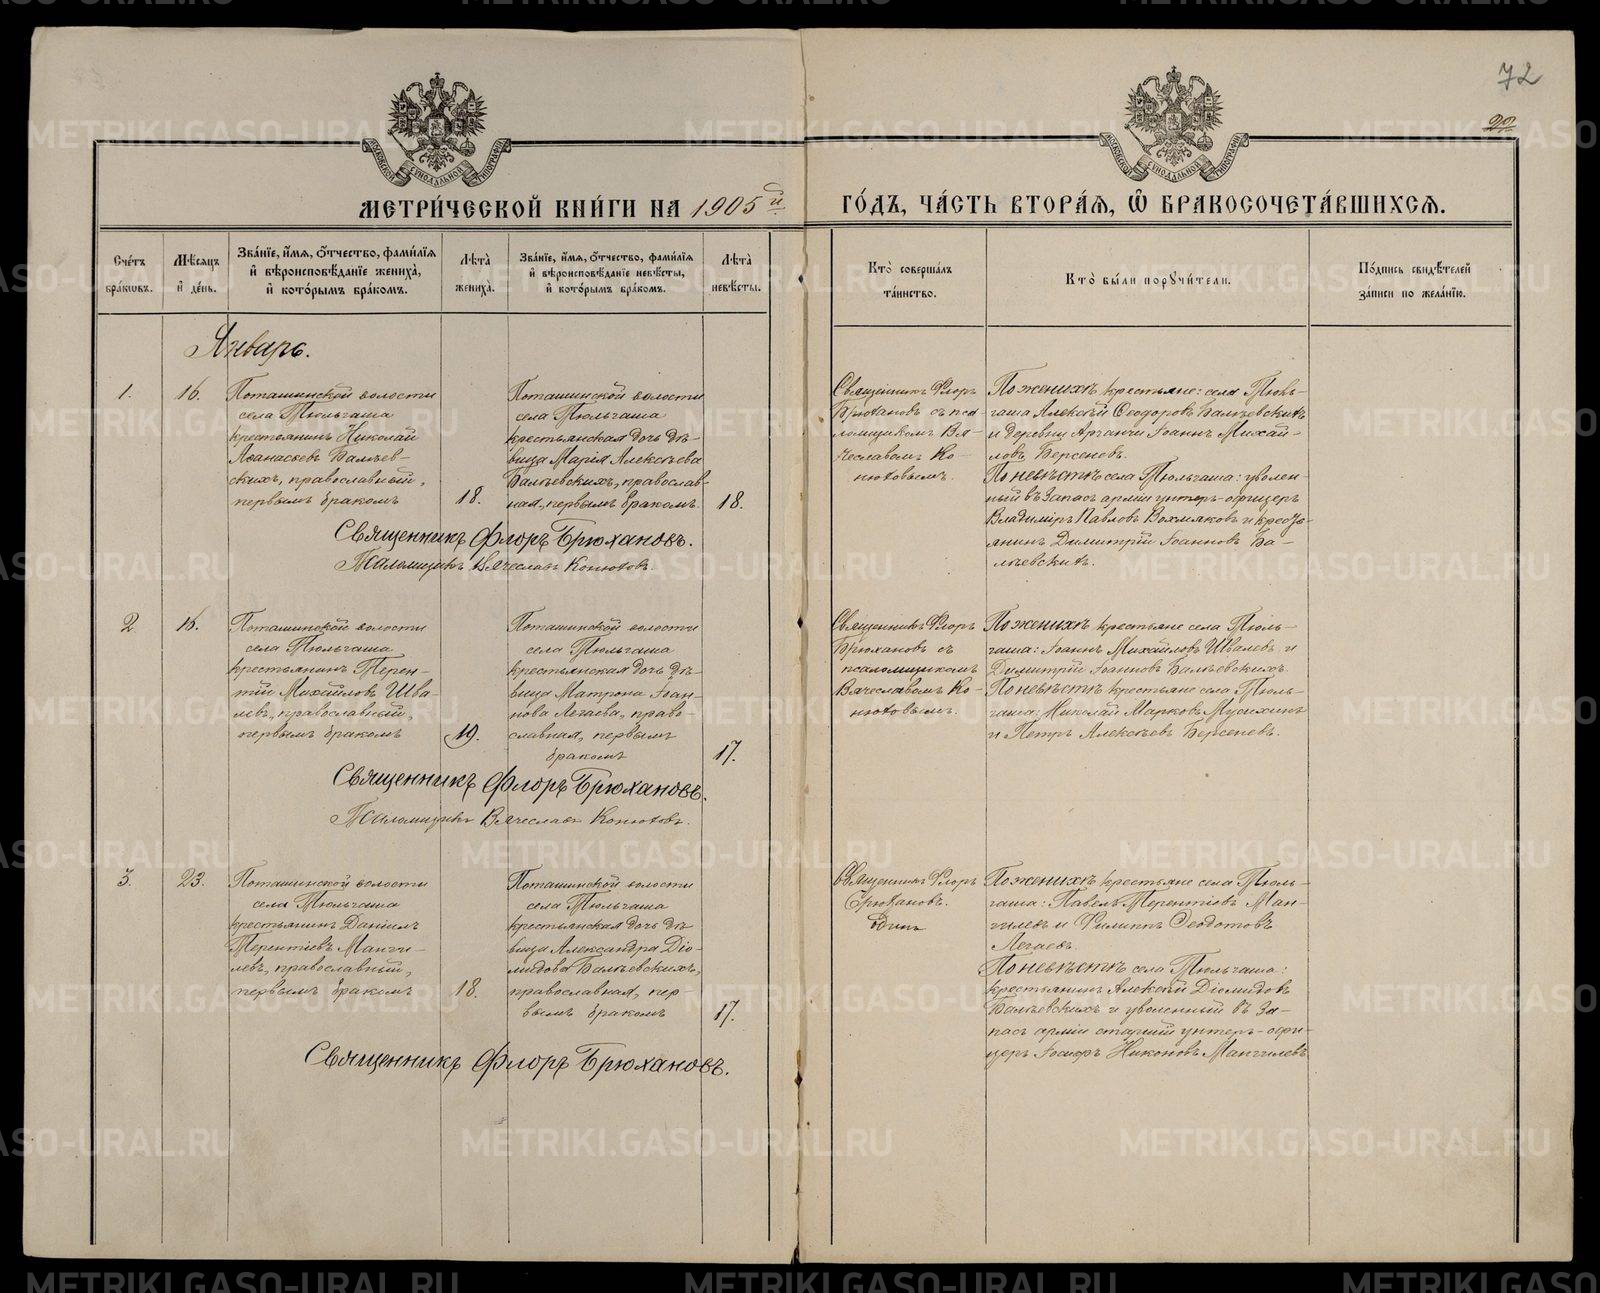 72
МЕТРИ́ЧЕСКОЙ КНИ́ГИ НА 1905й ГО́ДЪ, ЧА́СТЬ ВТОРА́Я, Ѡ БРАКОСОЧЕТА́ВШИХСЯ.
Сче́тъ бра́ковъ.
Мѣ́сяцъ и де́нь.
Зва́нїе, и́мя, о́тчество, фами́лїя и вѣроисповѣ́данїе жениха̀, и кото́рымъ бра́комъ.
Лѣ́та жениха̀.
Зва́нїе, и́мя, о́тчество, фами́лїя и вѣроисповѣ́данїе невѣ́сты, и кото́рымъ бра́комъ.
Лѣ́та невѣ́сты.
Кто̀ соверша́лъ та́инство.
Кто̀ бы́ли поручи́тели.
По́дпись свидѣ́телей за́писи по жела́нїю.
Январь.
1.
16.
Поташинской волости
села Тюльгаша
крестьянинъ Николай
Аѳанасьевъ Балѣев-
скихъ, православный,
первымъ бракомъ
18.
Поташинской волости
села Тюльгаша
крестьянская дочь дѣ-
вица Марія Алексѣева
Балѣевскихъ, православ-
ная, первымъ бракомъ.
18.
Священникъ Флоръ
Брюхановъ съ пса
ломщикомъ Вя-
чеславомъ Ко-
нюховымъ.
По женихѣ крестьяне: села Тюль-
гаша Алексѣй Ѳеодоровъ Балѣевскихъ
и деревни Арганчи Іоаннъ Михай-
ловъ Берсеневъ.
По невѣстѣ села Тюльгаша: уволен-
ный въ запасъ арміи унтеръ-офицеръ
Владиміръ Павловъ Вохмяковъ и крестья-
янинъ Димитрій Іоанновъ Ба-
лѣевскихъ.
Священникъ Флоръ Брюхановъ.
Псаломщикъ Вячеславъ Конюховъ.
2
16.
Поташинской волости
села Тюльгаша
крестьянинъ Терен-
тій Михайловъ Шва-
левъ, православный,
первымъ бракомъ
19.
Поташинской волости
села Тюльгаша
крестьянская дочь дѣ-
вица Матрона Іоан-
нова Легаева, право-
славная, первымъ
бракомъ
17.
Священникъ Флоръ
Брюхановъ съ
псаломщикомъ
Вячеславомъ Ко-
нюховымъ.
По женихѣ крестьяне села Тюль-
гаша: Іоаннъ Михайловъ Швалевъ и
Димитрій Іоанновъ Балѣевскихъ.
По невѣстѣ крестьяне села Тюль-
гаша: Николай Марковъ Мусихинъ
и Петръ Алексѣевъ Берсеневъ.
Священникъ Флоръ Брюхановъ.
Псаломщикъ Вячеславъ Конюховъ.
3.
23.
Поташинской волости
села Тюльгаша
крестьянинъ Даніилъ
Терентіевъ Манги-
левъ, православный,
первымъ бракомъ
18.
Поташинской волости
села Тюльгаша
крестьянская дочь дѣ
вица Александра Діо-
мидова Балѣевскихъ,
православная, пер-
вымъ бракомъ
17.
Священникъ Флоръ
Брюхановъ.
По женихѣ крестьяне села Тюль-
гаша: Павелъ Терентіевъ Ман-
гилевъ и Филиппъ Ѳеодотовъ
Легаевъ.
По невѣстѣ села Тюльгаша:
крестьянинъ Алексѣй Діомидовъ
Балѣевскихъ и уволенный въ за-
пасъ арміи старшій унтеръ-офи-
церъ Іосифъ Никоновъ Мангилевъ
Священникъ Флоръ Брюхановъ.
METRIKI.GASO-URAL.RU